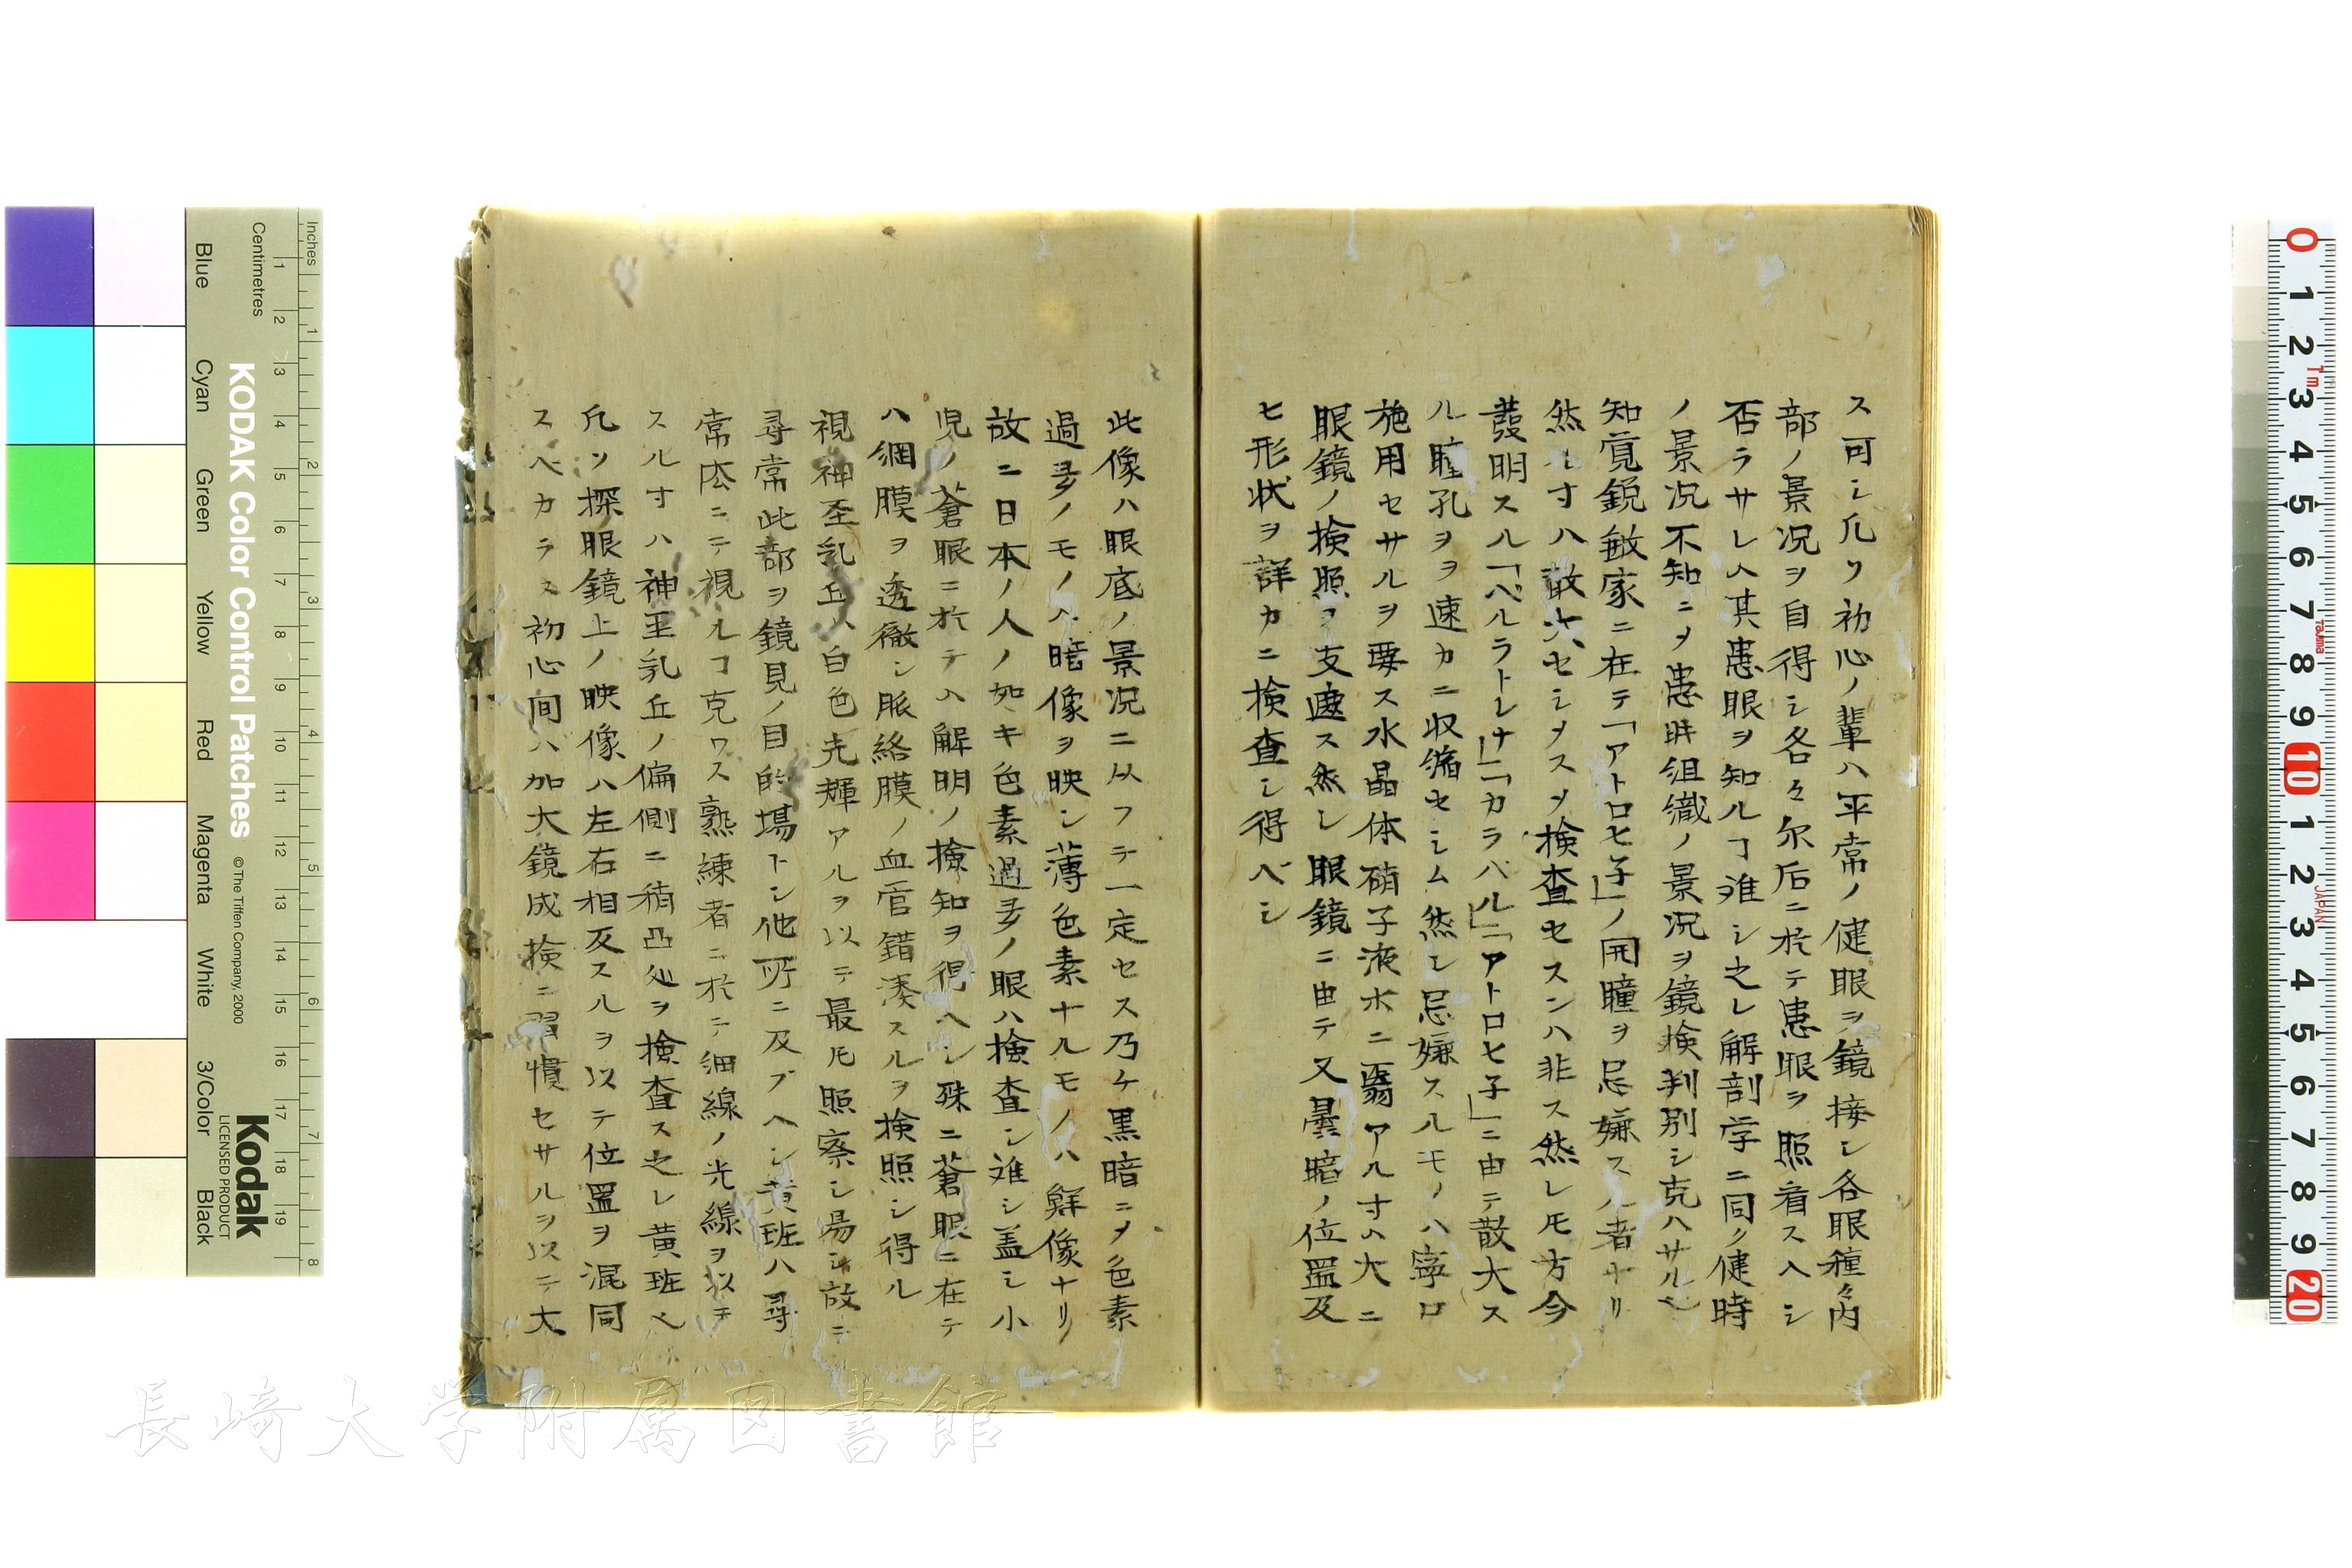 ス可シ凡ソ初心ノ輩ハ平常ノ健眼ヲ鏡接シ各眼種々内
部ノ景況ヲ自得シ各々尓后ニ於テ患眼ヲ照看スヘシ
否ラサレハ其患眼ヲ知ルヿ难シ之レ解剖学ニ同ク健時
ノ景況不知ニ〆患時组織ノ景況ヲ鏡検判別シ克ハサルヘシ
知覚鋭敏家ニ在テ「アトロヒ子」ノ開瞳ヲ忌嫌スル者ナリ
然レ寸ハ散大セシメス〆検査セスンハ非ス然レ𪜈方今
蕟明スル「ベルラトレナ」「カラバル」「アトロヒ子」ニ由テ散大ス
ル瞳孔ヲ速カニ収縮セシム然シ忌嫌スルモノハ寧ロ
施用セサルヲ要ス水晶体硝子液ホニ翳アル寸ハ大ニ
眼鏡ノ検照ヲ支遮ス然シ眼鏡ニ由テ又曇暗ノ位置及
ヒ形状ヲ詳カニ検査シ得ベシ
此像ハ眼底ノ景況ニ从フテ一定セス乃ケ黒暗ニ〆色素
過多ノモノハ暗像ヲ映シ薄色素ナルモノハ鮮像ナリ
故ニ日本ノ人ノ如キ色素過多ノ眼ハ検査シ难シ盖シ小
児ノ蒼眼ニ於テハ解明ノ検知ヲ得ヘシ殊ニ蒼眼ニ在テ
ハ網膜ヲ透徹シ脈絡膜ノ血管錯湊スルヲ検照シ得ル
視神圣乳丘ハ白色光輝アルヲ以テ最𪜈照察シ易シ故ニ
尋常此部ヲ鏡見ノ目的場トシ他所ニ及ブヘシ黄斑ハ尋
常底ニテ視ルヿ克ワス熟練者ニ於テ細線ノ光線ヲ以テ
スル寸ハ神圣乳丘ノ偏側ニ稍凸处ヲ検査ス之レ黄斑也
凡ソ探眼鏡上ノ映像ハ左右相反スルヲ以テ位置ヲ混同
スベカラス初心间ハ加大鏡成検ニ習慣セサルヲ以テ大
KODAK Color Control Patches
©The Tiffen Company, 2000
Kodak
LICENSED PRODUCT
Inches
Centimetres
Blue
Cyan
Green
Yellow
Red
Magenta
White
3/Color
Black
長崎大学附属図書館